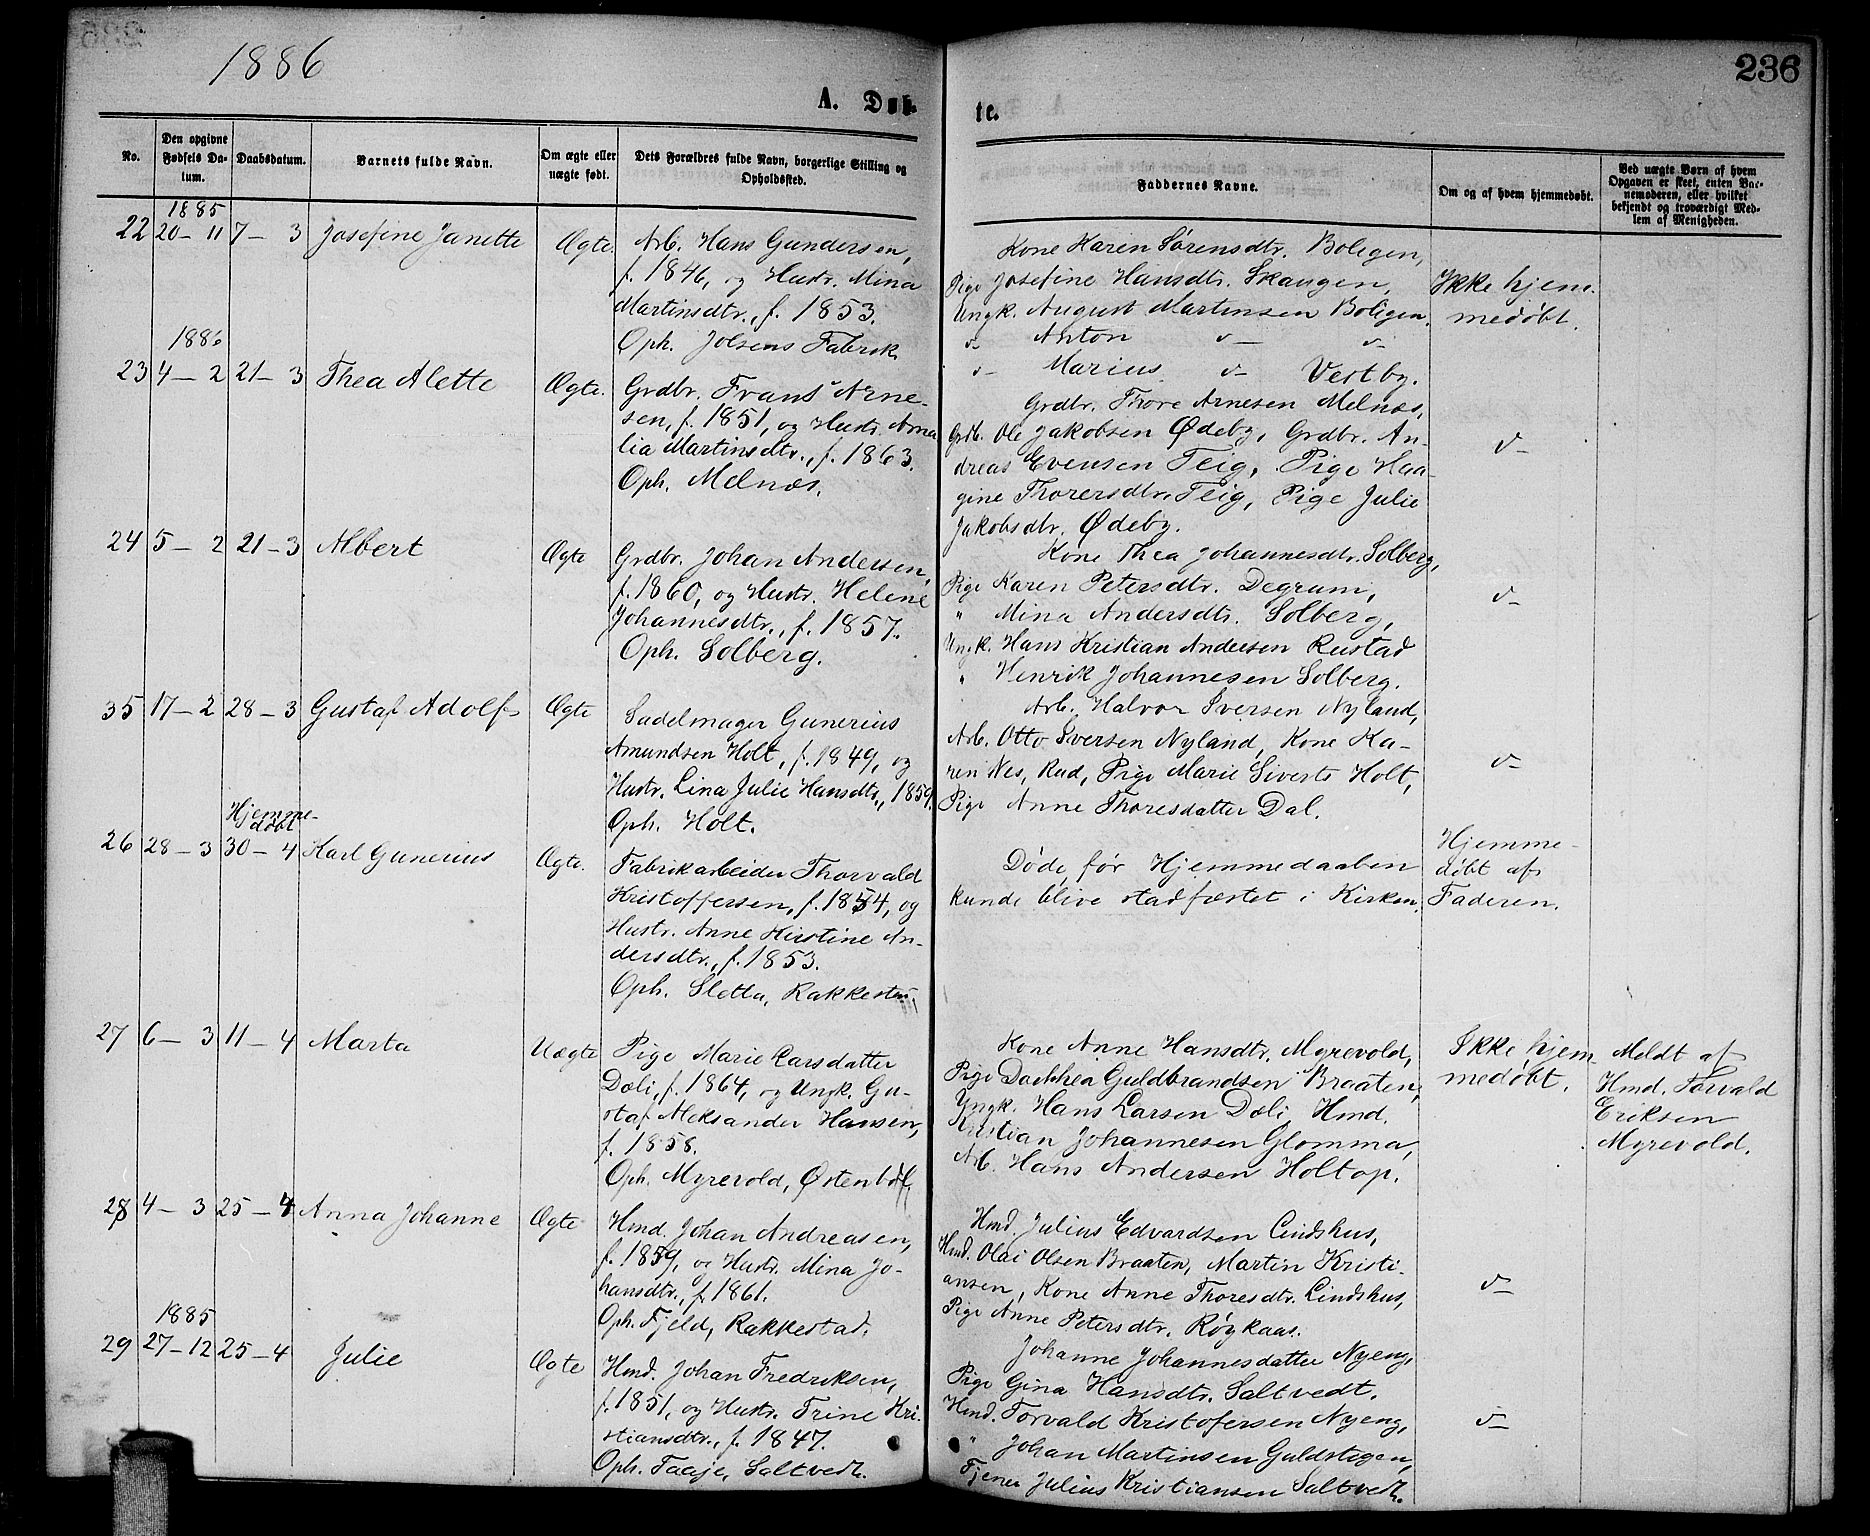 1886
236
A. Døb-
te.
No.
Den opgivne Fødsels Da-tum.
Daabsdatum.
Barnets fulde Navn.
Om ægte eller uægte født.
Dets Forældres fulde Navn, borgerlige Stilling og Opholdssted.
Faddernes Navne.
Om og af hvem hjemmedøbt.
Ved uægte Børn af hvem Opgaven er skeet, enten Bar-nemoderen, eller hvilket bekjendt og troværdigt Med-lem af Menigheden.
1885
22 20-11 7-3 Josefine Janette Ægte.
Arb. Hans Gundersen,
f. 1846, og Hustr. Mina
Martinsdtr., f. 1853.
Oph. Jolsens Fabrik
Kone Karen Sørensdtr. Boligen,
Pige Josefine Hansdtr. Skaugen,
Ungk. August Martinsen Boligen.
v- Anton v- v-
v- Marius v- Vestby.
Ikke hjem-
medøbt.
1886
23 4-2 21-3 Thea Alette Ægte.
Grdbr. Frans Arne-
sen, f. 1851, og Hustr. Ama
lia Martinsdtr., f. 1863.
Oph. Melnæs.
Grdbr. Thore Arnesen Melnæs,
Grdb. Ole Jakobsen Ødeby, Grdbr. An-
dreas Evensen Teig, Pige Haa-
gine Thorersdtr. Teig, Pige Julie
Jakobsdtr. Ødeby.
v-
24 5-2 21-3 Albert Ægte
Grdbr. Johan Andersen,
f. 1860, og Hustr. Helene
Johannesdtr., f. 1857.
Oph. Solberg.
Kone Thea Johannesdtr. Solberg,
Pige Karen Petersdtr. Degrum,
" Mina Andersdtr. Solberg,
Ungk. Hans Kristian Andersen Rustad
" Henrik Johannesen Solberg.
v-
35 17-2 28-3 Gustaf Adolf Ægte
Sadelmager Gunerius
Amundsen Holt, f. 1849, og
Hustr. Lina Julie Hansdtr., 1859.
Oph. Holt.
Arb. Halvor Iversen Nyland,
Arb. Otto Iversen Nyland, Kone Ka-
ren Nes, Rud, Pige Marie Siverts Holt,
Pige Anne Thoresdatter Dal.
v-
Hjemme-
døbt
26 28-3 30-4 Karl Gunerius Ægte.
Fabrikarbeider Thorvald
Kristoffersen, f. 1854, og
Hustr. Anne Kirstine An-
dersdtr., f. 1853.
Oph. Sletta, Rakkestad.
Døde før Hjemmedaaben
kunde blive stadfæstet i Kirken.
Hjemme-
døbt af
Faderen.
27 6-3 11-4 Marta Uægte
Pige Marie Larsdatter
Dæli, f. 1864, og Ungk. Gu-
staf Aleksander Hansen,
f. 1858.
Oph. Myrevold, Østenbøl.
Kone Anne Hansdtr. Myrevold,
Pige Dorthea Guldbrandsen Braaten,
Yngk. Hans Larsen Dæli, Hmd.
Kristian Johannesen Glomma,
Arb. Hans Andersen Holtop.
Ikke hjem
medøbt.
Meldt af
Hmd. Torvald
Eriksen
Myrevold.
28 4-3 25-4 Anna Johanne Ægte
Hmd. Johan Andreasen,
f. 1859, og Hustr. Mina Jo-
hansdtr., f. 1861.
Oph. Fjeld, Rakkestad.
Hmd. Julius Edvardsen Lindshus,
Hmd. Olai Olsen Braaten, Martin Kristi-
ansen, Kone Anne Thoresdtr. Lindshus,
Pige Anne Petersdtr. Røykaas.
v-
1885
29 27-12 25-4 Julie Ægte
Hmd. Johan Fredriksen,
f. 1851, og Hustr. Trine Kri-
stiansdtr., f. 1847.
Oph. Taaje, Saltvedt.
Johanne Johannesdatter Nyeng,
Pige Gina Hansdtr. Saltvedt.
Hmd. Torvald Kristofersen Nyeng,
" Johan Martinsen Guldstegen,
Tjener Julius Kristiansen Saltvedt.
v-